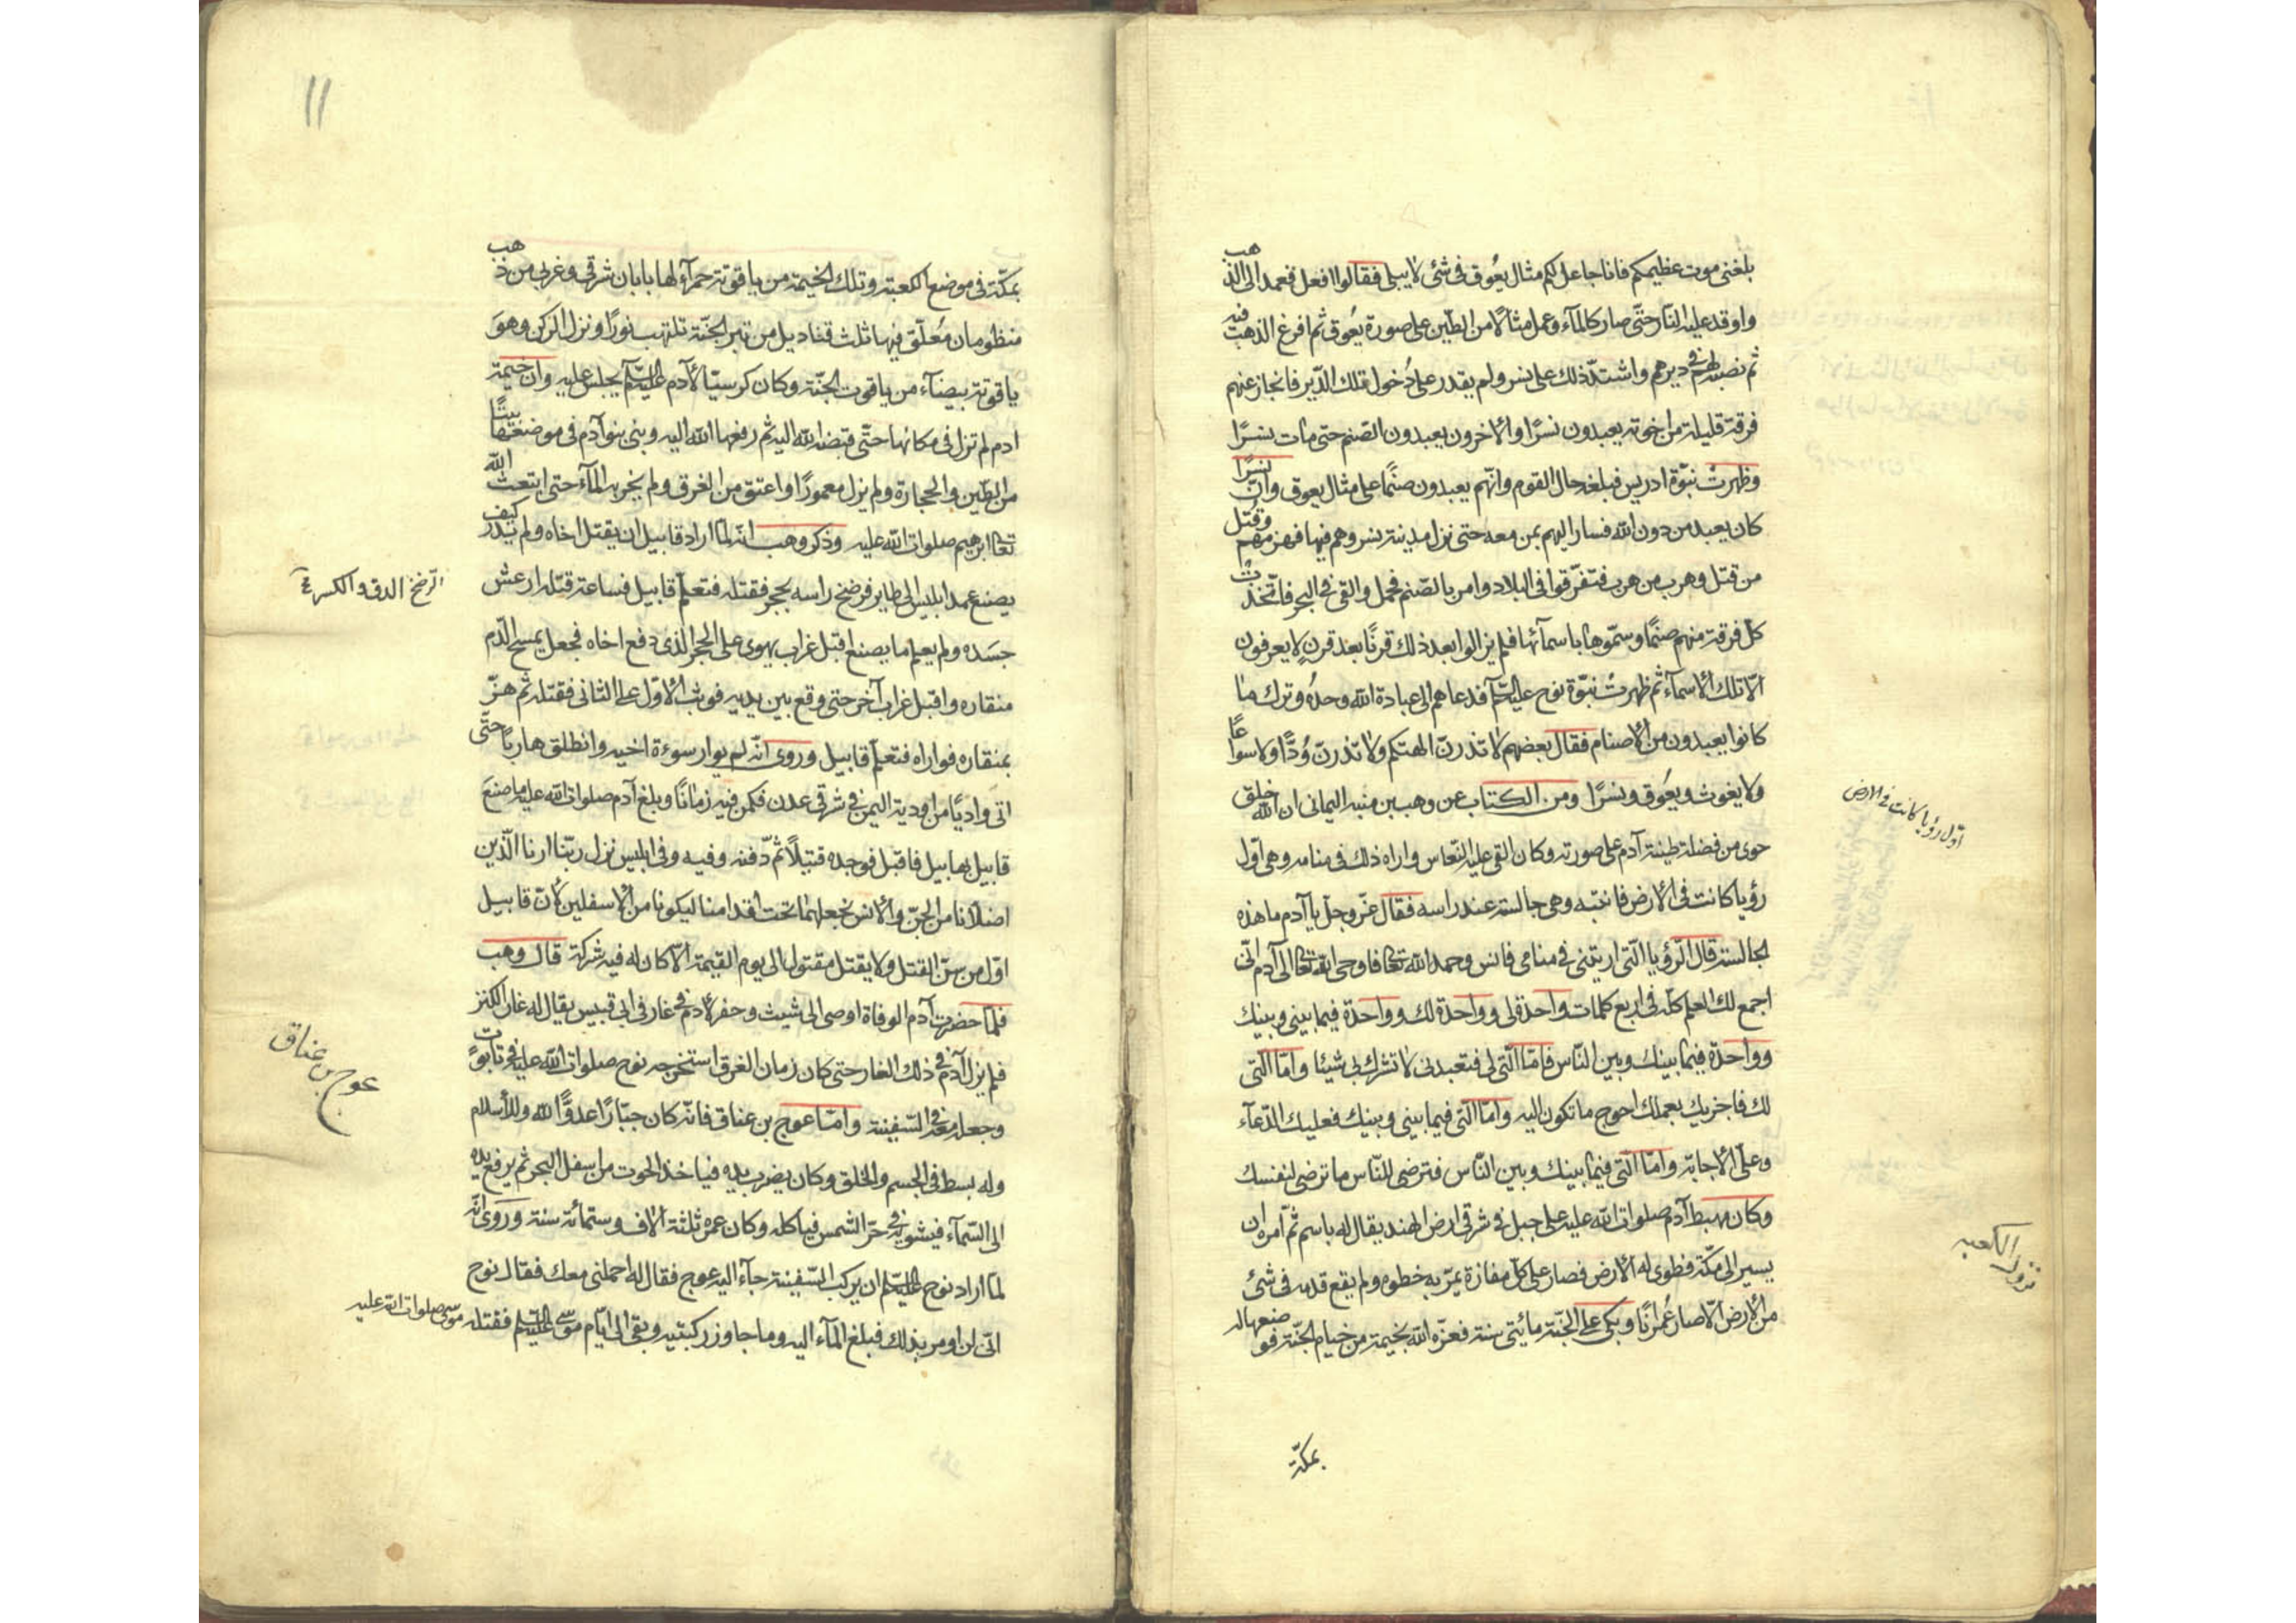 بلغنى موت عظيمكم فانا جاعل لكم مثال يعُوق فى شئ لا يبلى فقالوا افعل فعمد الى الذهب
واوقد عليه النّار حتّى صار كالمآء وعمل مثالًا من الطّين على صورة يعُوق ثم افرغ الذهب فيه
ثم نصبه لهم فى ديرهم واشتدّ ذلك على نسر ولم يقدر على دُخول تلك الدّير فانحاز عنهم
فرقة قليلة من اخوته يعبدون نسرًا والاخرون يعبدون الصّنم حتى مات نسرًا
وظهرتْ نبّوة ادريس فبلغه حال القوم وانّهم يعبدون صنمًا على مثال يعوق وانّ نسرًا
كان يعبد من دون الله فسار اليهم بمن معه حتى نزل مدينة نسر وهم فيها فهزمهم وقُتل
من قتل وهرب من هرب فتفرّقوا فى البلاد وامر بالصّنم فحمل والقى فى البحر فاتّخذتْ
كلّ فرقة منهم صنمًا وسمّوها باسمآئها فلم يزالوا بعد ذلك قرنًا بعد قرنٍ لا يعرفون
الّا تلك الاسمآء ثم ظهرتْ نبّوة نوح عليه السّلم فدعاهم الى عبادة الله وحدُه وترك ما
كانوا يعبدون من الاصنام فقال بعضهم لا تذرنّ الهتكم ولا تذرنّ وُدًّا ولا سواعًا
ولا يغوث ويعُوق ونسرًا ومن الكتاب عن وهب بن منبه اليمانى ان الله خلق
حوى من فضلة طينة آدم على صورته وكان القى عليه النّعاس واراه ذلك فى منامه وهى اوّل
رؤيا كانت فى الارض فانتبه وهى جالسة عند راسه فقال عزّ وجلّ يا آدم ما هذه
الجالسة قال الرّؤيا الّتى اريتنى فى منامى فانس وحمد الله تعالى فاوحى الله تعالى الى آدم انّى
اجمع لك العلم كلّه فى اربع كلمات واحدة لى وواحدة لك وواحدة فيما بينى وبينك
وواحدة فيما بينك وبين النّاس فامّا الّتى لى فتعبدنى لا تشرك بى شيئا وامّا الّتى
لك فاجزيك بعملك احوج ما تكون اليه وامّا الّتى فيما بينى وبينك فعليك الدّعآء
وعلىّ الاجابة وامّا الّتى فيما بينك وبين النّاس فترضى للنّاس ما ترضى لنفسك
وكان مهبط آدم صلوات الله عليه على جبل فى شرقى ارض الهند يقال له باسم ثمّ امره ان
يسير الى مكّة فطوى له الارض فصار على كلّ مفازة يمرّ به خطوه ولم يقع قدمه فى شئ
من الارض الّا صار عُمرانًا وبكى على الجنّة مائتى سنة فعزّه الله بخيمة من خيام الجنّة فوضعها له
بمكّة
اوّل رؤيا كانت فى الارض
نزول الكعبه
١١
بمكّة فى موضع الكعبة وتلك الخيمة من ياقوتة حمرآء لها بابان شرقى وغربى من ذهب
منظومان مُعلّق فيها ثلث قناديل من تبر الجنّة تلتهب نورًا ونزل الركن وهو
ياقوتة بيضآء من ياقوت الجنّة وكان كرسيّا لآدم عليه السّلم يجلس عليه وان خيمة
ادم لم تزل فى مكانها حتّى قبضه الله اليه ثم رفعها الله اليه وبنى بنو آدم فى موضعها بيتًا
من الطّين والحجارة ولم يزل معمورًا واعتق من الغرق ولم يخربه المآء حتى ابتعث الله
تعالى ابرهيم صلوات الله عليه وذكر وهب انّه لمّا اراد قابيل ان يقتل اخاه ولم يدر كيف
يصنع عمد ابليس الى طاير فرضخ راسه بحجر فقتله فتعلّم قابيل فساعة قتله ارعش
جسَده ولم يعلم ما يصنع اقبل غراب يهوى على الحجر الذى دفع اخاه فجعل يمسح الدّم
منقاره واقبل غراب آخر حتى وقع بين يديه فوثب الاوّل على الثانى فقتله ثم هزّ
بمنقاره فواراه فتعلّم قابيل وروى انّه لم يوار سوءة اخيه وانطلق هاربًا حتّى
اتى واديًا من اودية اليمن فى شرقى عدن فكمن فيه زمانًا وبلغ آدم صلوات الله عليه ما صنع
قابيل بهابيل فاقبل فوجده قتيلًا ثمّ دفنه وفيه وفى ابليس نزل ربّنا ارنا الّذين
اضلّانا من الجنّ والانس نجعلهما تحت اقدامنا ليكونا من الاسفلين لأنّ قابيل
اوّل من سنّ القتل ولا يقتل مقتول الى يوم القيمة الّا كان له فيه شركة قال وهب
فلمّا حضرت آدم الوفاة اوصى الى شيث وحفر لآدم فى غار فى ابى قبيس يقال له غار الكنز
فلم يزل آدم فى ذلك الغار حتى كان زمان الغرق استخرجه نوح صلوات الله عليه فى تابوت
وجعله معه فى السّفينة وامّا عوج بن عناق فانّه كان جبّارًا عدوًّا لله وللأسلام
وله بسط فى الجسم والخلق وكان يضرب بيده فياخذ الحوت من اسفل البحر ثم يرفع يده
الى السّمآء فيشويه فى حرّ الشمس فياكله وكان عمره ثلثة الاف وستمائة سنة وروى انّه
لمّا اراد نوح عليه السّلم ان يركب السّفينة جآء اليه عوج فقال له احملنى معك فقال نوح
انّى لن اومر بذلك فبلغ المآء اليه وما جاوز ركبتيه وبقى الى ايّام موسى عليه السّلم فقتله موسى صلوات الله عليه
الرضخ الدق والكسر
عوج بن عناق